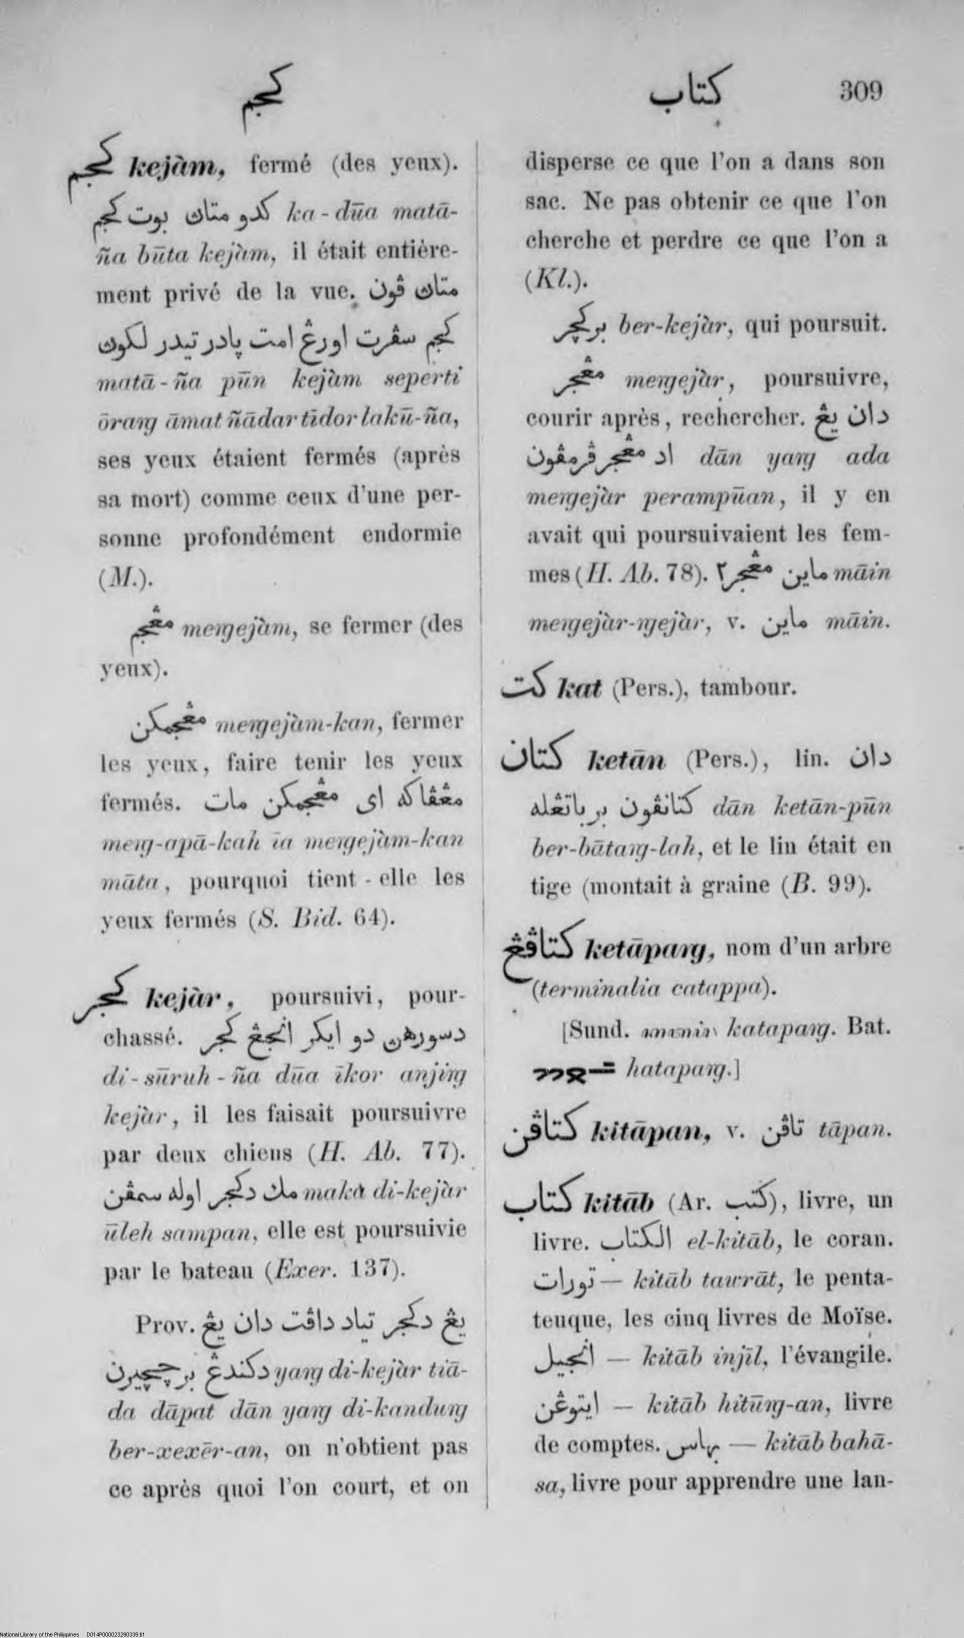 كجم
كتاب 309
كجم kejàm, fermé (des yeux).
كدو متاڽ بوت كجم ka-dūa matā-
ña būta kejàm, il était entière-
ment privé de la vue. متاڽ ڤون
كجم سڤرت اورڠ امت ڽادر تيدر لكوڽ
matā-ña pūn kejàm seperti
ōraŋg āmat ñādar tīdor lakū-ña,
ses yeux étaient fermés (après
sa mort) comme ceux d'une per-
sonne profondément endormie
(M.).
مڠجم meŋgejàm, se fermer (des
yeux).
مڠجمكن meŋgejàm-kan, fermer
les yeux, faire tenir les yeux
fermés. مڠڤاكه اى مڠجمكن مات
meŋg-apā-kah īa meŋgejàm-kan
māta, pourquoi tient-elle les
yeux fermés (S. Bid. 64).
كجر kejàr, poursuivi, pour-
chassé. دسورهن دو ايكر انجڠ كجر
di-sūruh-ña dūa īkor anjiŋg
kejàr, il les faisait poursuivre
par deux chiens (H. Ab. 77).
مك دكجر اوله سمڤن maka di-kejàr
ūleh sampan, elle est poursuivie
par le bateau (Exer. 137).
Prov. يڠ دكجر تياد داڤت دان يڠ
دكندڠ برچچيرن yaŋg di-kejàr tiā-
da dāpat dān yaŋg di-kanduŋg
ber-xexēr-an, on n'obtient pas
ce après quoi l'on court, et on
disperse ce que l'on a dans son
sac. Ne pas obtenir ce que l'on
cherche et perdre ce que l'on a
(Kl.).
بركجر ber-kejàr, qui poursuit.
مڠجر meŋgejàr, poursuivre,
courir après, rechercher. دان يڠ
اد مڠجر ڤرمڤون dān yaŋg ada
meŋgejàr perampūan, il y en
avait qui poursuivaient les fem-
mes (H. Ab. 78). ماين مڠجر٢ māin
meŋgejàr-ŋgejàr, v. ماين māin.
كت kat (Pers.), tambour.
كتان ketān (Pers.), lin. دان
كتانڤون برباتڠله dān ketān-pūn
ber-bātaŋg-lah, et le lin était en
tige (montait à graine (B. 99).
كتاڤڠ ketāpaŋg, nom d'un arbre
(terminalia catappa).
[Sund. katapaŋg. Bat.
hatapaŋg.]
كتاڤن kitāpan, v. تاڤن tāpan.
كتاب kitāb (Ar. كتب), livre, un
livre. الكتاب el-kitāb, le coran.
تورات — kitāb tawrāt, le penta-
teuque, les cinq livres de Moïse.
انجيل — kitāb injīl, l'évangile.
ايتوڠن — kitāb hitūŋg-an, livre
de comptes. بهاس — kitāb bahā-
sa, livre pour apprendre une lan-
National Library of the Philippines D014P000023280339.tif